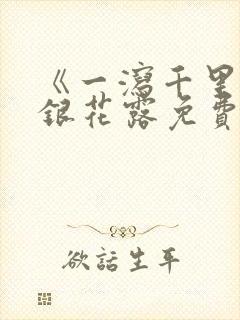 《一瀉千里
銀花露免費
欲話生平